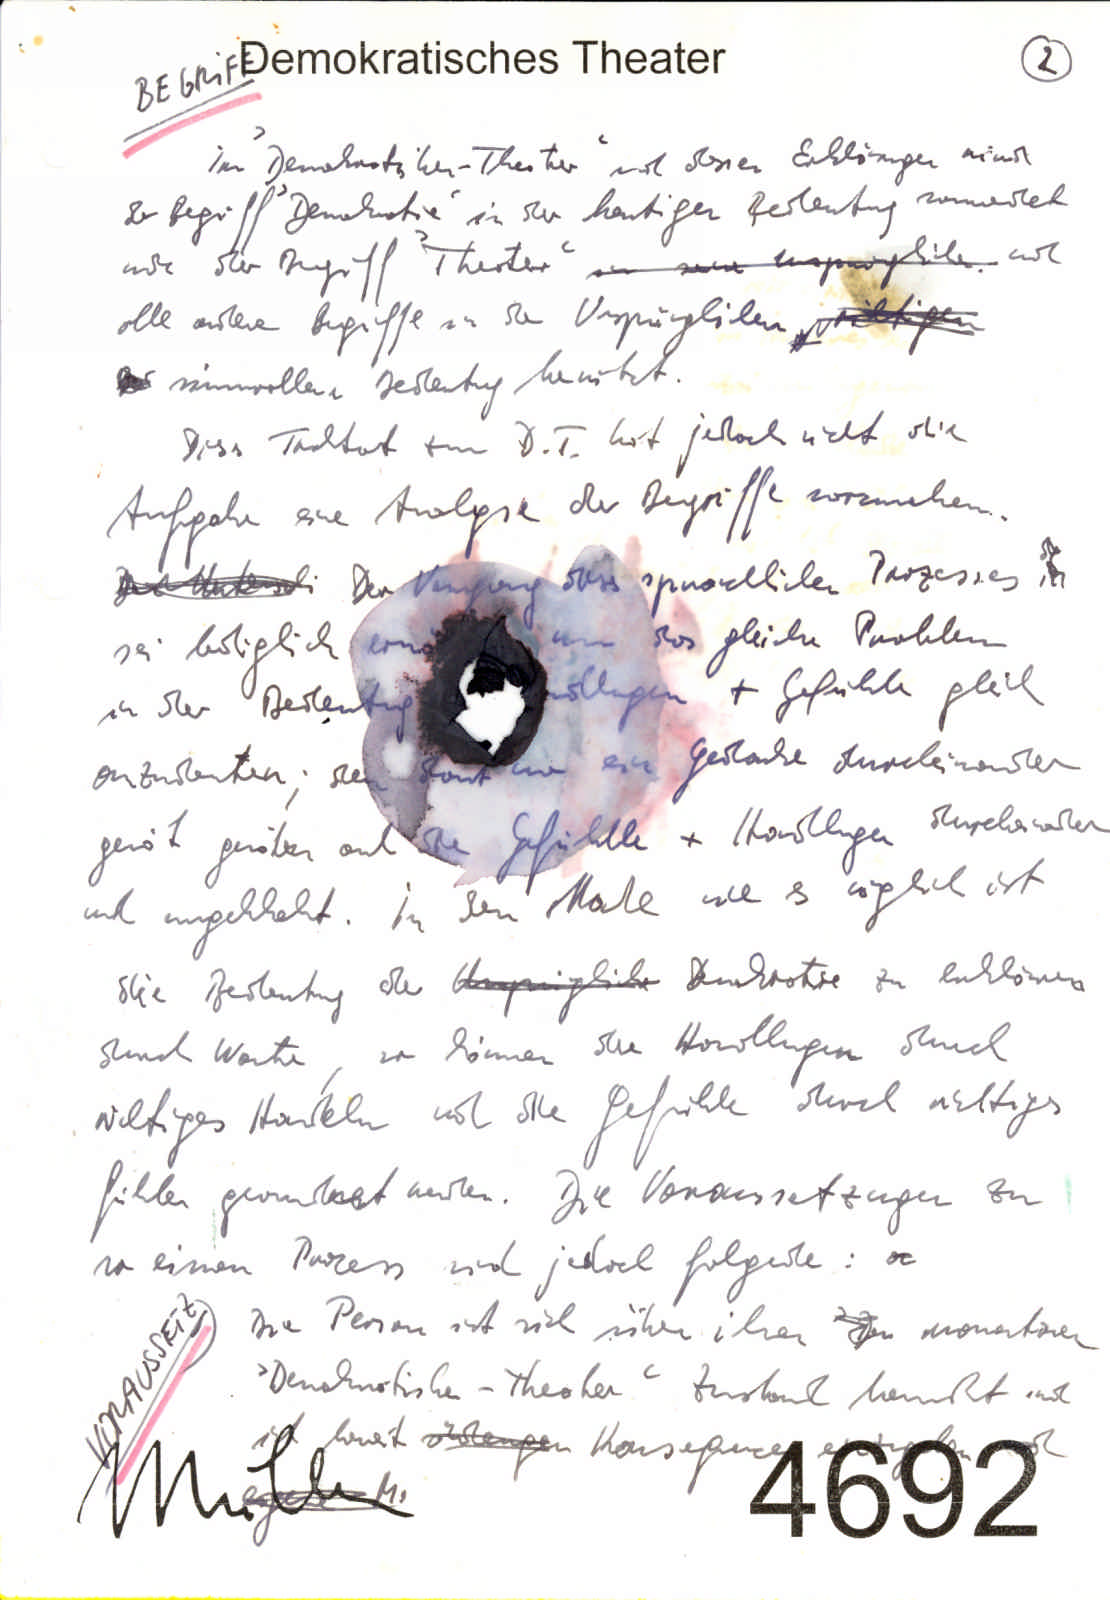 Demokratisches Theater
2
BEGRIFF
Im "Demokratischen-Theater" und dessen Erklärungen wird
der Begriff "Demokratie" in der heutigen Bedeutung verwendet
und der Begriff "Theater" und
alle andere Begriffe in der Ursprünglichen,
sinnvollen Bedeutung benützt.
Dies Traktat zum D.T. hat jedoch nicht die
Aufgabe eine Analyse der Begriffe vorzunehmen.
Der Vorgang des sprachlichen Prozesses
sei lediglich um das gleiche Problem
in der Bedeutung + Gefühle gleich
anzudeuten; ein Gedanke durcheinander
gerät geraten auch die Gefühle + Handlungen durcheinander
und umgekehrt. In dem Maße wie es möglich ist
die Bedeutung der Demokratie zu erklären
durch Worte, so können die Handlungen durch
richtiges Handeln und die Gefühle durch richtiges
fühlen werden. Die Voraussetzungen zu
so einem Prozess sind jedoch folgende:
VORAUSSETZ.
Die Person ist sich über ihren momentanen
"Demokratischen-Theater" Zustand bewußt und
ist bereit Konsequenzen und
4692